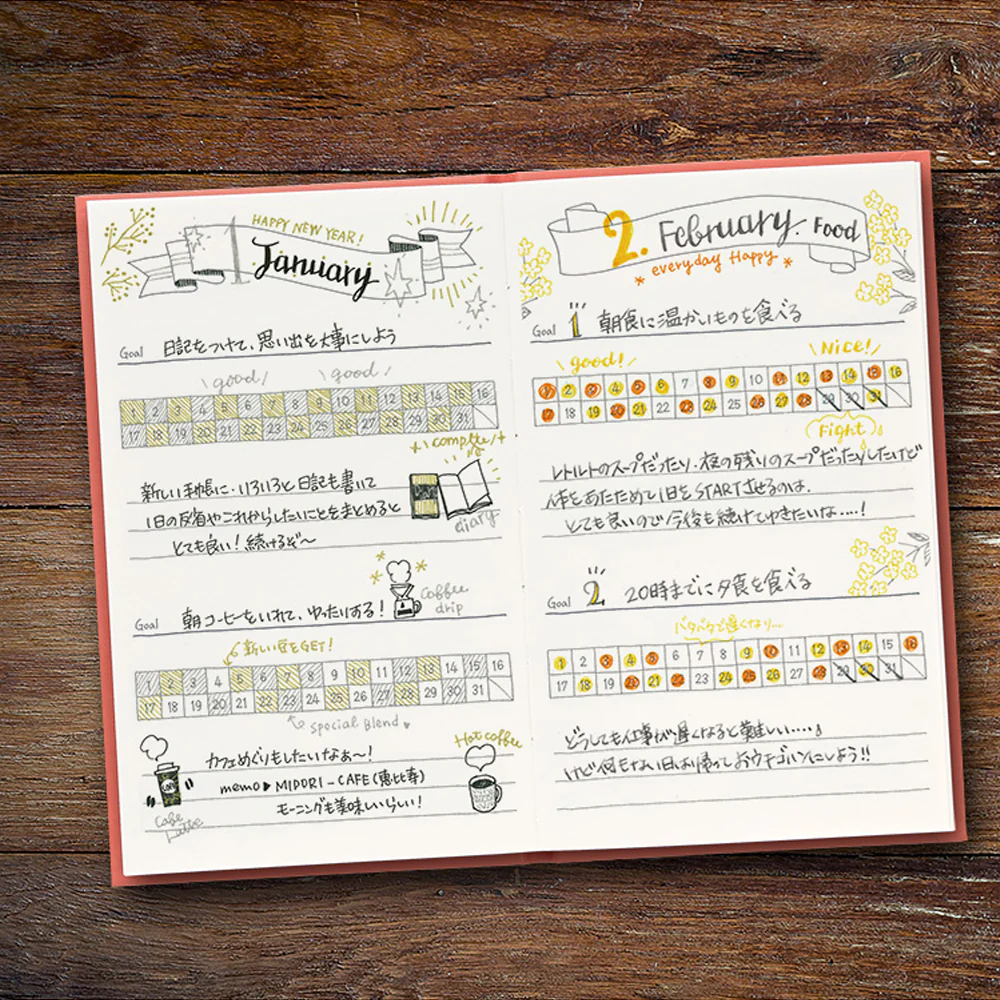 HAPPY NEW YEAR!
1 January
Goal 日記をつけて、思い出を大事にしよう
good! good!
1 2 3 4 5 6 7 8 9 10 11 12 13 14 15 16
17 18 19 20 21 22 23 24 25 26 27 28 29 30 31
complete!
新しい手帳に、いろいろと日記も書いて
1日の反省やこれからしたいことをまとめると
とても良い!続けるぞ〜
diary
Goal 朝コーヒーをいれて、ゆったりする!
Coffee
drip
新しい豆をGET!
1 2 3 4 5 6 7 8 9 10 11 12 13 14 15 16
17 18 19 20 21 22 23 24 25 26 27 28 29 30 31
special Blend
カフェめぐりもしたいなぁ〜!
memo▶MIDORI-CAFE(恵比寿)
モーニングも美味しいらしい!
Cafe
Latte
Hot coffee
2. February. Food
* everyday Happy *
Goal 1 朝食に温かいものを食べる
good! Nice!
1 2 3 4 5 6 7 8 9 10 11 12 13 14 15 16
17 18 19 20 21 22 23 24 25 26 27 28 29 30 31
(Fight)
レトルトのスープだったり、夜の残りのスープだったりしたけど
体をあたためて1日をSTARTさせるのは、
とても良いので今後も続けてゆきたいな....!
Goal 2 20時までに夕食を食べる
バタバタで遅くなり...
1 2 3 4 5 6 7 8 9 10 11 12 13 14 15 16
17 18 19 20 21 22 23 24 25 26 27 28 29 30 31
どうしても仕事が遅くなると難しい....♪
けど何もない日は帰っておウチゴハンにしよう!!